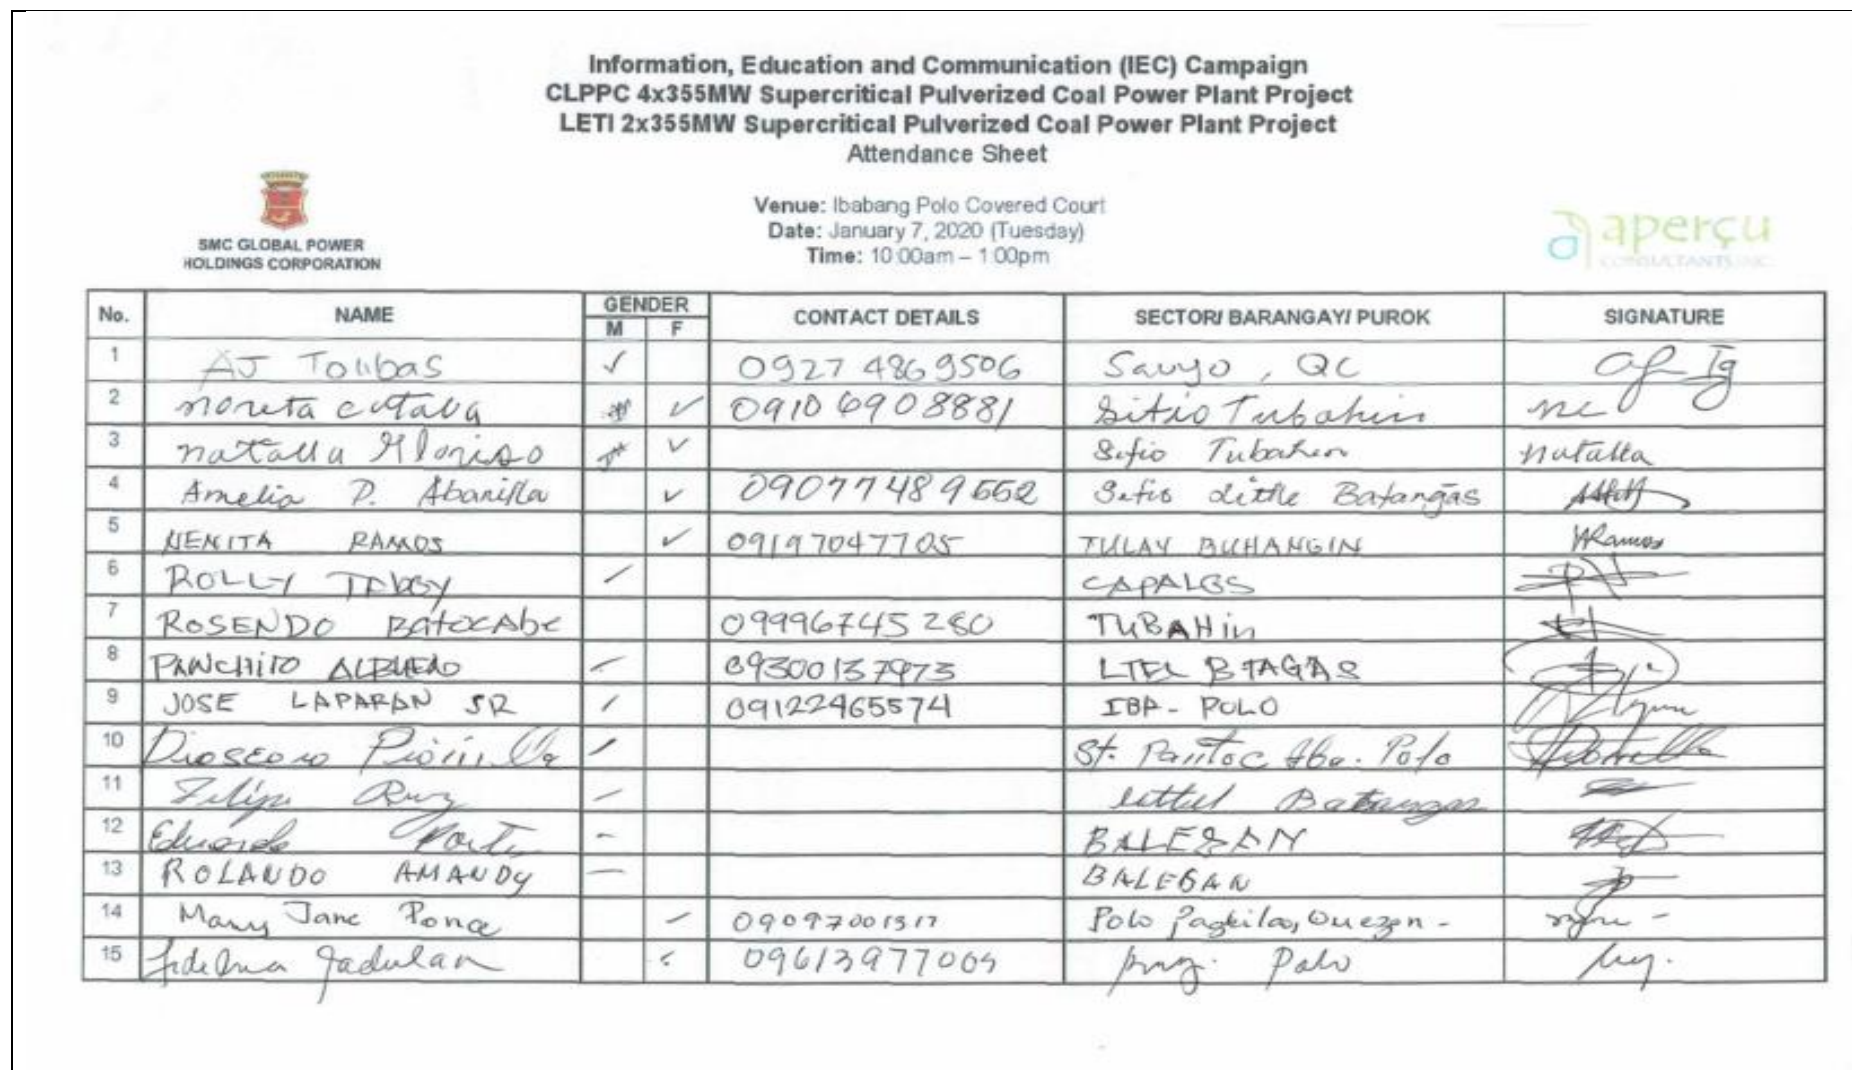 Information, Education and Communication (IEC) Campaign
CLPPC 4x355MW Supercritical Pulverized Coal Power Plant Project
LETI 2x355MW Supercritical Pulverized Coal Power Plant Project
Attendance Sheet
SMC GLOBAL POWER
HOLDINGS CORPORATION
Venue: Ibabang Polo Covered Court
Date: January 7, 2020 (Tuesday)
Time: 10:00am – 1:00pm
aperçu
CONSULTANTS, INC.
No. NAME GENDER M F CONTACT DETAILS SECTOR/ BARANGAY/ PUROK SIGNATURE
1 AJ 0927 4869506 Sauyo, QC
2 0910 6908881 Sitio Tubahin nc
3 Sitio Tubahin
4 Amelia P. Abanilla 09077489552 Sitio Little Batangas
5 NENITA RAMOS 09197047705 TULAY BUHANGIN
6 ROLLY CAPALOS
7 ROSENDO BATOCABE 09996745280 TUBAHin
8 PANCHITO 09300137973
9 JOSE LAPARAN SR 09122465574 IBA-POLO
10 Iba. Polo
11 Batangas
12 Eduardo BALESAN
13 ROLANDO AMANDY BALESAN
14 Mary Jane Ponce 09097001317 Polo Pagbilao, Quezon -
15 Polo